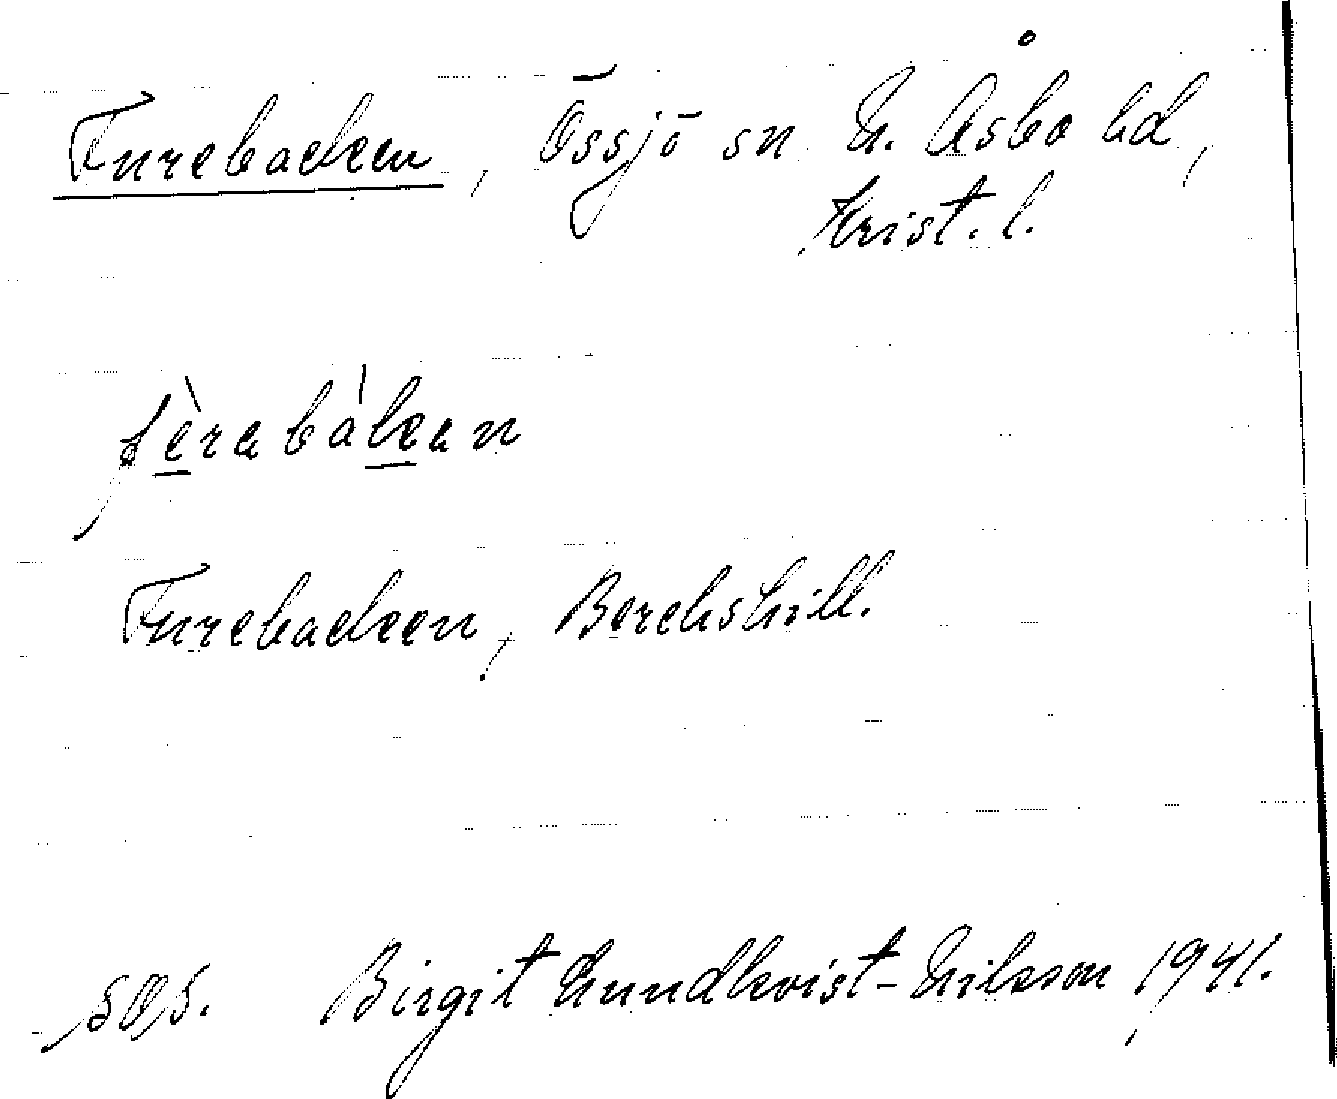 Furebacken, Össjö sn N. Åsbo hd,
Krist. l.
fèrabàkan
Furebacken,
SOS. Birgit Lundkvist-Nilsson 1941.